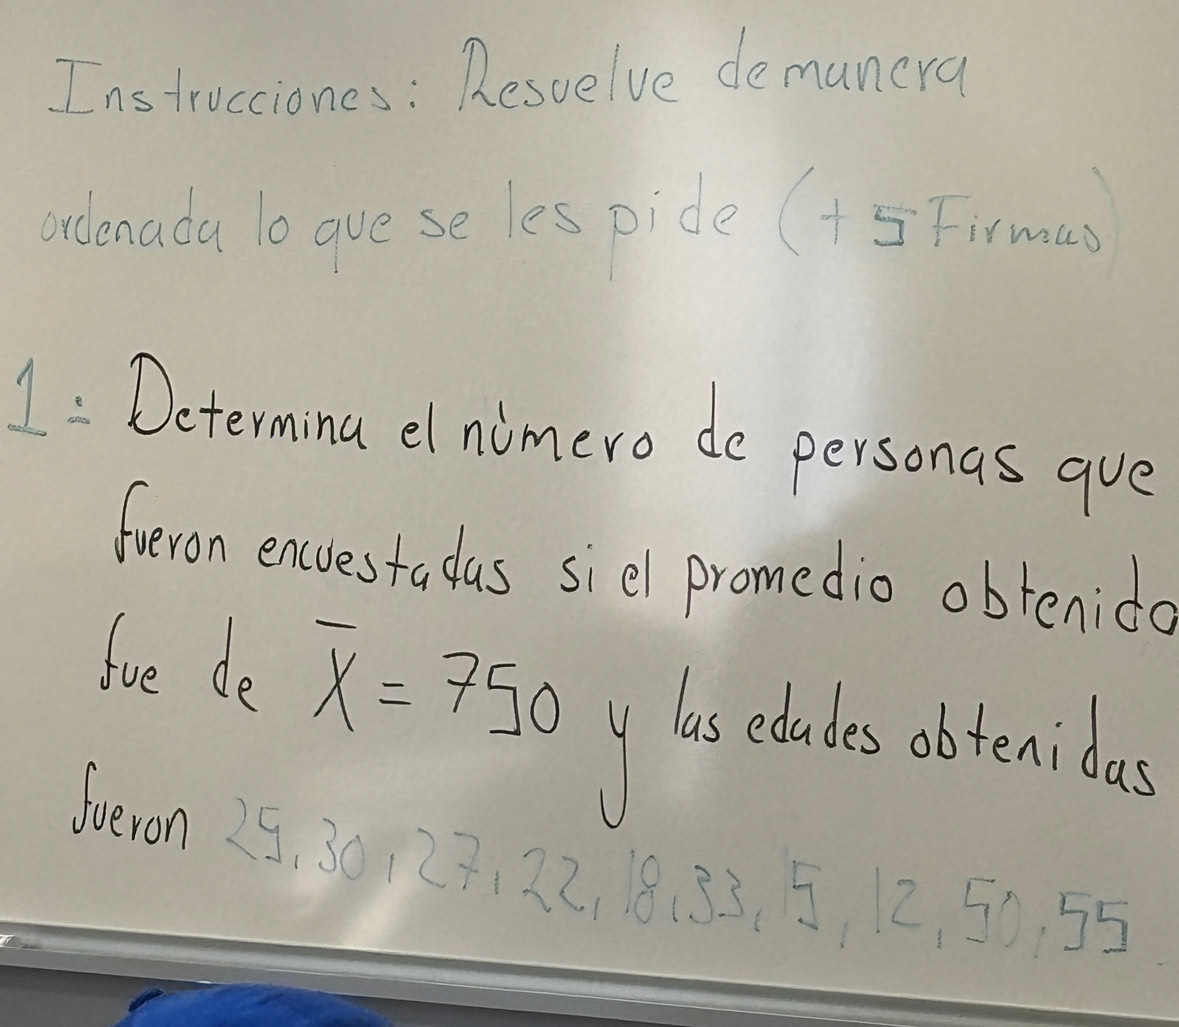 Instrucciones: Resuelve de manera
ordenada lo que se les pide (+5 Firmas)
1= Determina el número de personas que
fueron encuestadas si el promedio obtenido
fue de X̅ = 750 y las edades obtenidas
fueron 25, 30, 27, 22, 18, 33, 15, 12, 50, 55